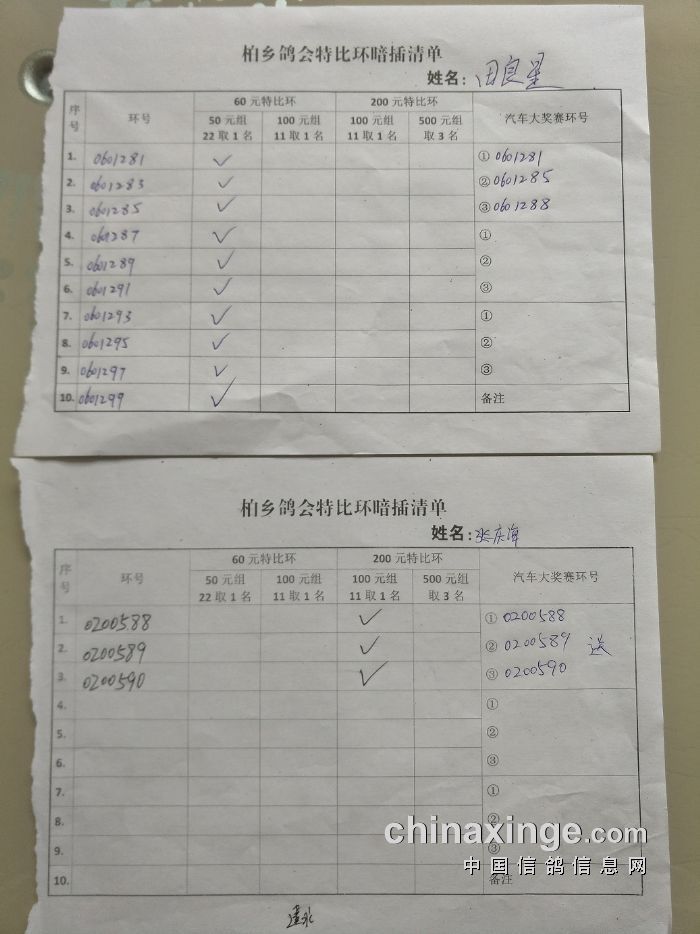 柏乡鸽会特比环暗插清单
姓名：田良星
序号 环号 60元特比环 200元特比环 汽车大奖赛环号
50元组 22取1名 100元组 11取1名 100元组 11取1名 500元组 取3名
1. 0601281 ✓ ① 0601281
2. 0601283 ✓ ② 0601285
3. 0601285 ✓ ③ 0601288
4. 0601287 ✓ ①
5. 0601289 ✓ ②
6. 0601291 ✓ ③
7. 0601293 ✓ ①
8. 0601295 ✓ ②
9. 0601297 ✓ ③
10. 0601299 ✓ 备注
柏乡鸽会特比环暗插清单
姓名：张庆海
序号 环号 60元特比环 200元特比环 汽车大奖赛环号
50元组 22取1名 100元组 11取1名 100元组 11取1名 500元组 取3名
1. 0200588 ✓ ① 0200588
2. 0200589 ✓ ② 0200589 送
3. 0200590 ✓ ③ 0200590
4. ①
5. ②
6. ③
7. ①
8. ②
9. ③
10. 备注
chinaxinge.com
中国信鸽信息网